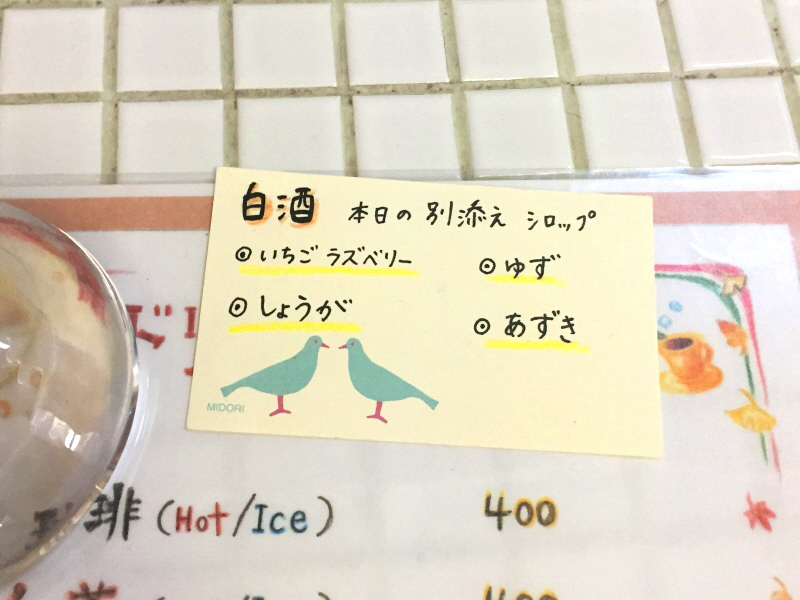 白酒 本日の 別添え シロップ
◎いちご ラズベリー ◎ゆず
◎しょうが ◎あずき
MIDORI
琲 (Hot/Ice) 400